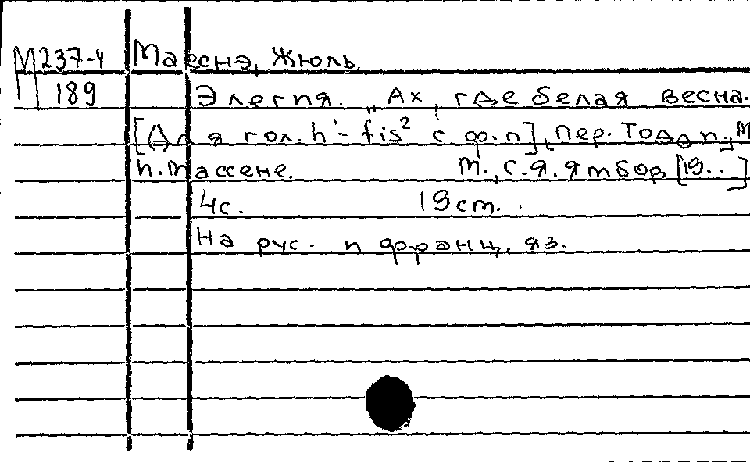 М 237-4 Массне, Жюль.
189 Элегия. „Ах, где белая весна.
[Для гол. h'-fis² с ф.п], пер. Тодди, М
н. Массене. М., С.Я. Ямбор, [19..]
4с. 19см.
На рус. и франц. яз.